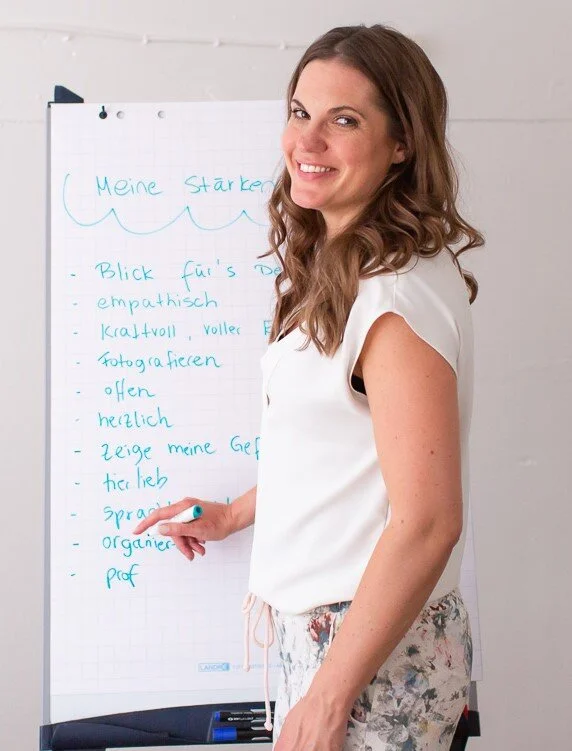 Meine Stärken
- Blick für's De
- empathisch
- kraftvoll, voller E
- Fotografieren
- offen
- herzlich
- zeige meine Gef
- tierlieb
- spra
- organier-
- prof
LANDRÉ